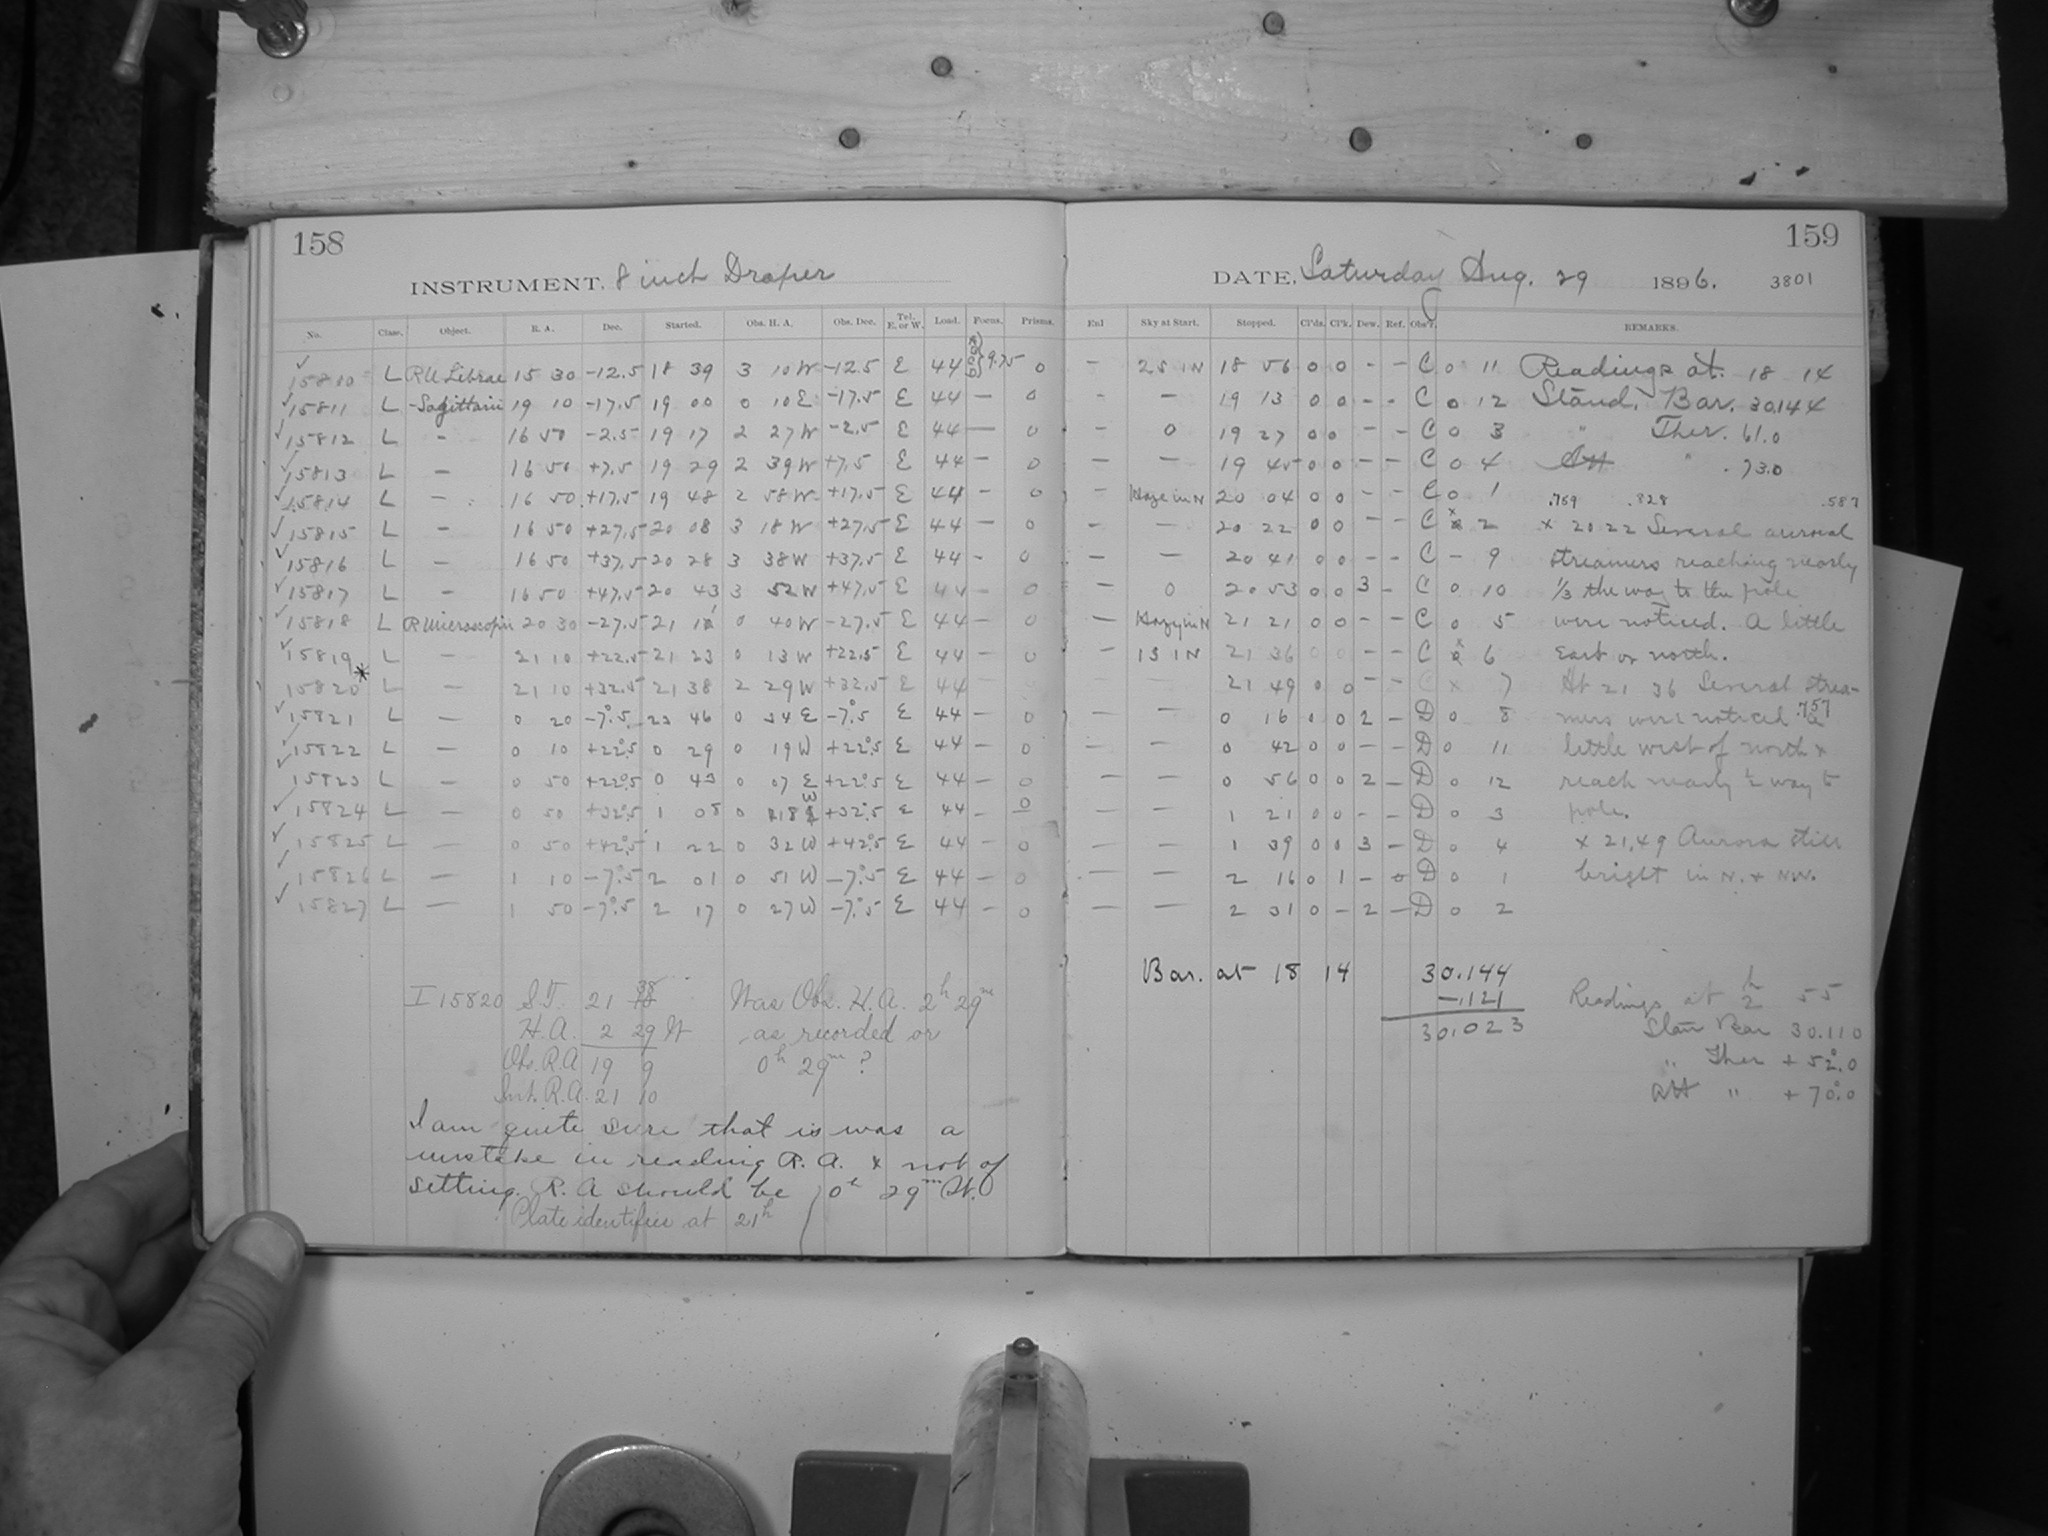 158
INSTRUMENT. 8 inch Draper
No. Class. Object. R. A. Dec. Started. Obs. H. A. Obs. Dec. Tel. E. or W. Load. Focus. Prisms.
15810 L RU Librae 15 30 -12.5 18 39 3 10 W -12.5 E 44 9.75 0
15811 L - Sagittarii 19 10 -17.5 19 00 0 10 E -17.5 E 44 - 0
15812 L - 16 50 -2.5 19 17 2 27 W -2.5 E 44 - 0
15813 L - 16 50 +7.5 19 29 2 39 W +7.5 E 44 - 0
15814 L - 16 50 +17.5 19 48 2 58 W +17.5 E 44 - 0
15815 L - 16 50 +27.5 20 08 3 18 W +27.5 E 44 - 0
15816 L - 16 50 +37.5 20 28 3 38 W +37.5 E 44 - 0
15817 L - 16 50 +47.5 20 43 3 52 W +47.5 E 44 - 0
15818 L R Microscopii 20 30 -27.5 21 0 40 W -27.5 E 44 - 0
15819 L - 21 10 +22.5 21 23 0 13 W +22.5 E 44 - 0
15820* L - 21 10 +32.5 21 38 2 29 W +32.5 E 44
15821 L - 0 20 -7°.5 23 46 0 34 E -7°.5 E 44 - 0
15822 L - 0 10 +22°.5 0 29 0 19 W +22°.5 E 44 - 0
15823 L - 0 50 +22°.5 0 43 0 07 E +22°.5 E 44 - 0
15824 L - 0 50 +32°.5 1 08 0 18 W +32°.5 E 44 - 0
15825 L - 0 50 +42°.5 1 22 0 32 W +42°.5 E 44 - 0
15826 L - 1 10 -7°.5 2 01 0 51 W -7°.5 E 44 - 0
15827 L - 1 50 -7°.5 2 17 0 27 W -7°.5 E 44 - 0
I 15820 S.T. 21 38 Was Obs. H.A. 2h 29m
H.A. 2 29 W as recorded or
Obs. R.A 19 9 0h 29m ?
Int. R.A. 21 10
I am quite sure that is was a
mistake in reading R.A. & not of
setting. R.A should be 0h 29m W.
Plate identifies at 21h
159
DATE, Saturday Aug. 29 1896. 3801
Enl Sky at Start. Stopped. Cl'ds. Cl'k. Dew. Ref. Obs'r. REMARKS.
- 2S 1N 18 56 0 0 - - C 0 11 Readings at 18 14
- - 19 13 0 0 - - C 0 12 Stand. Bar. 30.144
- 0 19 27 0 0 - - C 0 3 " Ther. 61.0
- - 19 45 0 0 - - C 0 4 Att " 73.0
- Haze in N 20 04 0 0 - - C 0 1 .759 .828 .587
- - 20 22 0 0 - - C x 2 x 20 22 Several auroral
- - 20 41 0 0 - - C - 9 streamers reaching nearly
- 0 20 53 0 0 3 - C 0 10 1/3 the way to the pole
- Hazy in N 21 21 0 0 - - C 0 5 were noticed. A little
- 1S 1N 21 36 0 0 - - C x 6 East or north.
21 49 0 0 - - C x 7 At 21 36 Several strea-
- - 0 16 0 0 2 - D 0 8 mers were noticed .757 a
- - 0 42 0 0 - - D 0 11 little west of north &
- - 0 56 0 0 2 - D 0 12 reach nearly ½ way to
- - 1 21 0 0 - - D 0 3 pole.
- - 1 39 0 0 3 - D 0 4 x 21.49 Aurora still
- - 2 16 0 1 - 0 D 0 1 bright in N. & NW.
- - 2 31 0 - 2 - D 0 2
Bar. at 18 14 30.144
-.121
30.023
Readings at 2h 55
Stan Bar 30.110
" Ther + 52°.0
Att " + 70°.0